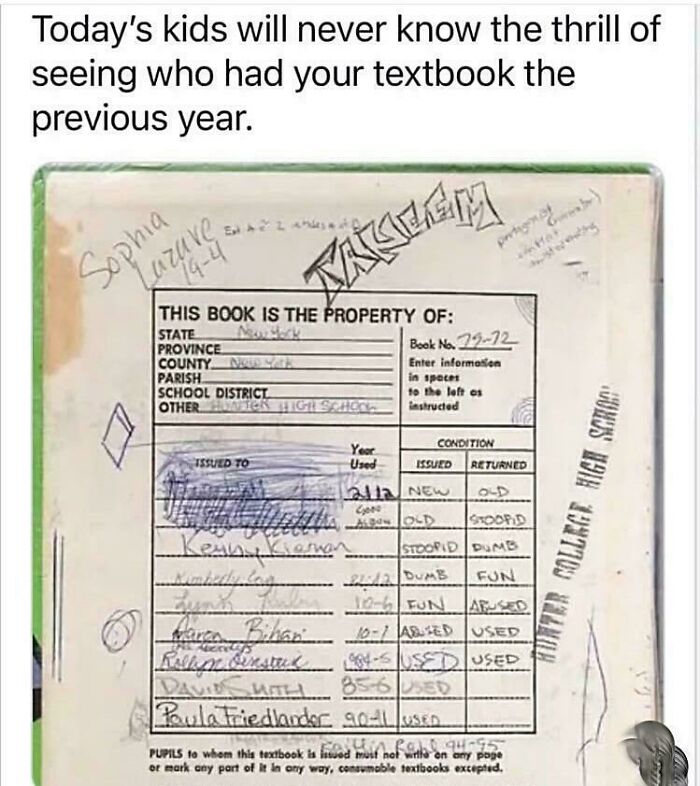 Today's kids will never know the thrill of
seeing who had your textbook the
previous year.
Sophia
Lazare
19-4
TAKSEEM
THIS BOOK IS THE PROPERTY OF:
STATE New York
PROVINCE
COUNTY New York
PARISH
SCHOOL DISTRICT
OTHER HUNTER HIGH SCHOOL
Book No. 79-72
Enter information
in spaces
to the left as
instructed
ISSUED TO
Year
Used
CONDITION
ISSUED RETURNED
2112 NEW OLD
OLD STOOPID
Kenny Kiernan STOOPID DUMB
Kimberly DUMB FUN
Lynn 10-6 FUN ABUSED
Aaron Bihari 10-7 ABUSED USED
984-5 USED USED
DAVID SMITH 85-6 USED
Paula Friedlander 90-91 USED
94-95
PUPILS to whom this textbook is issued must not write on any page
or mark any part of it in any way, consumable textbooks excepted.
HUNTER COLLEGE HIGH SCHOOL